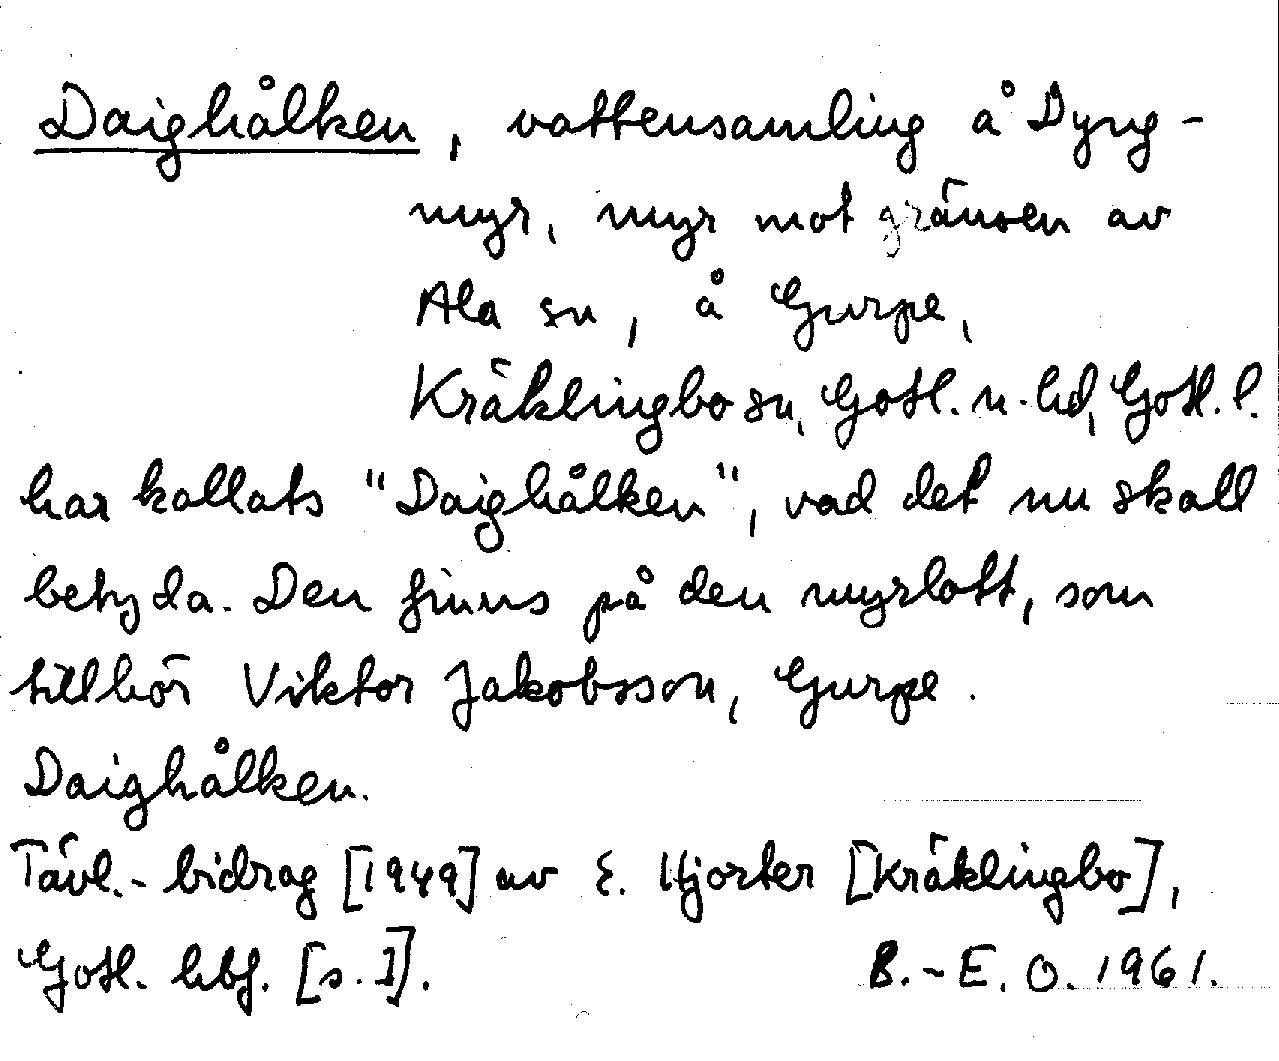 Daighålken, vattensamling å Dyng-
myr, myr mot gränsen av
Ala sn, å Gurpe,
Kräklingbo sn, Gotl. n. hd, Gotl. l.
har kallats "Daighålken", vad det nu skall
betyda. Den finns på den myrlott, som
tillhör Viktor Jakobsson, Gurpe.
Daighålken.
Tävl.-bidrag [1949] av E. Hjorter [Kräklingbo],
Gotl. hbf. [s. 1].
B.-E. O. 1961.